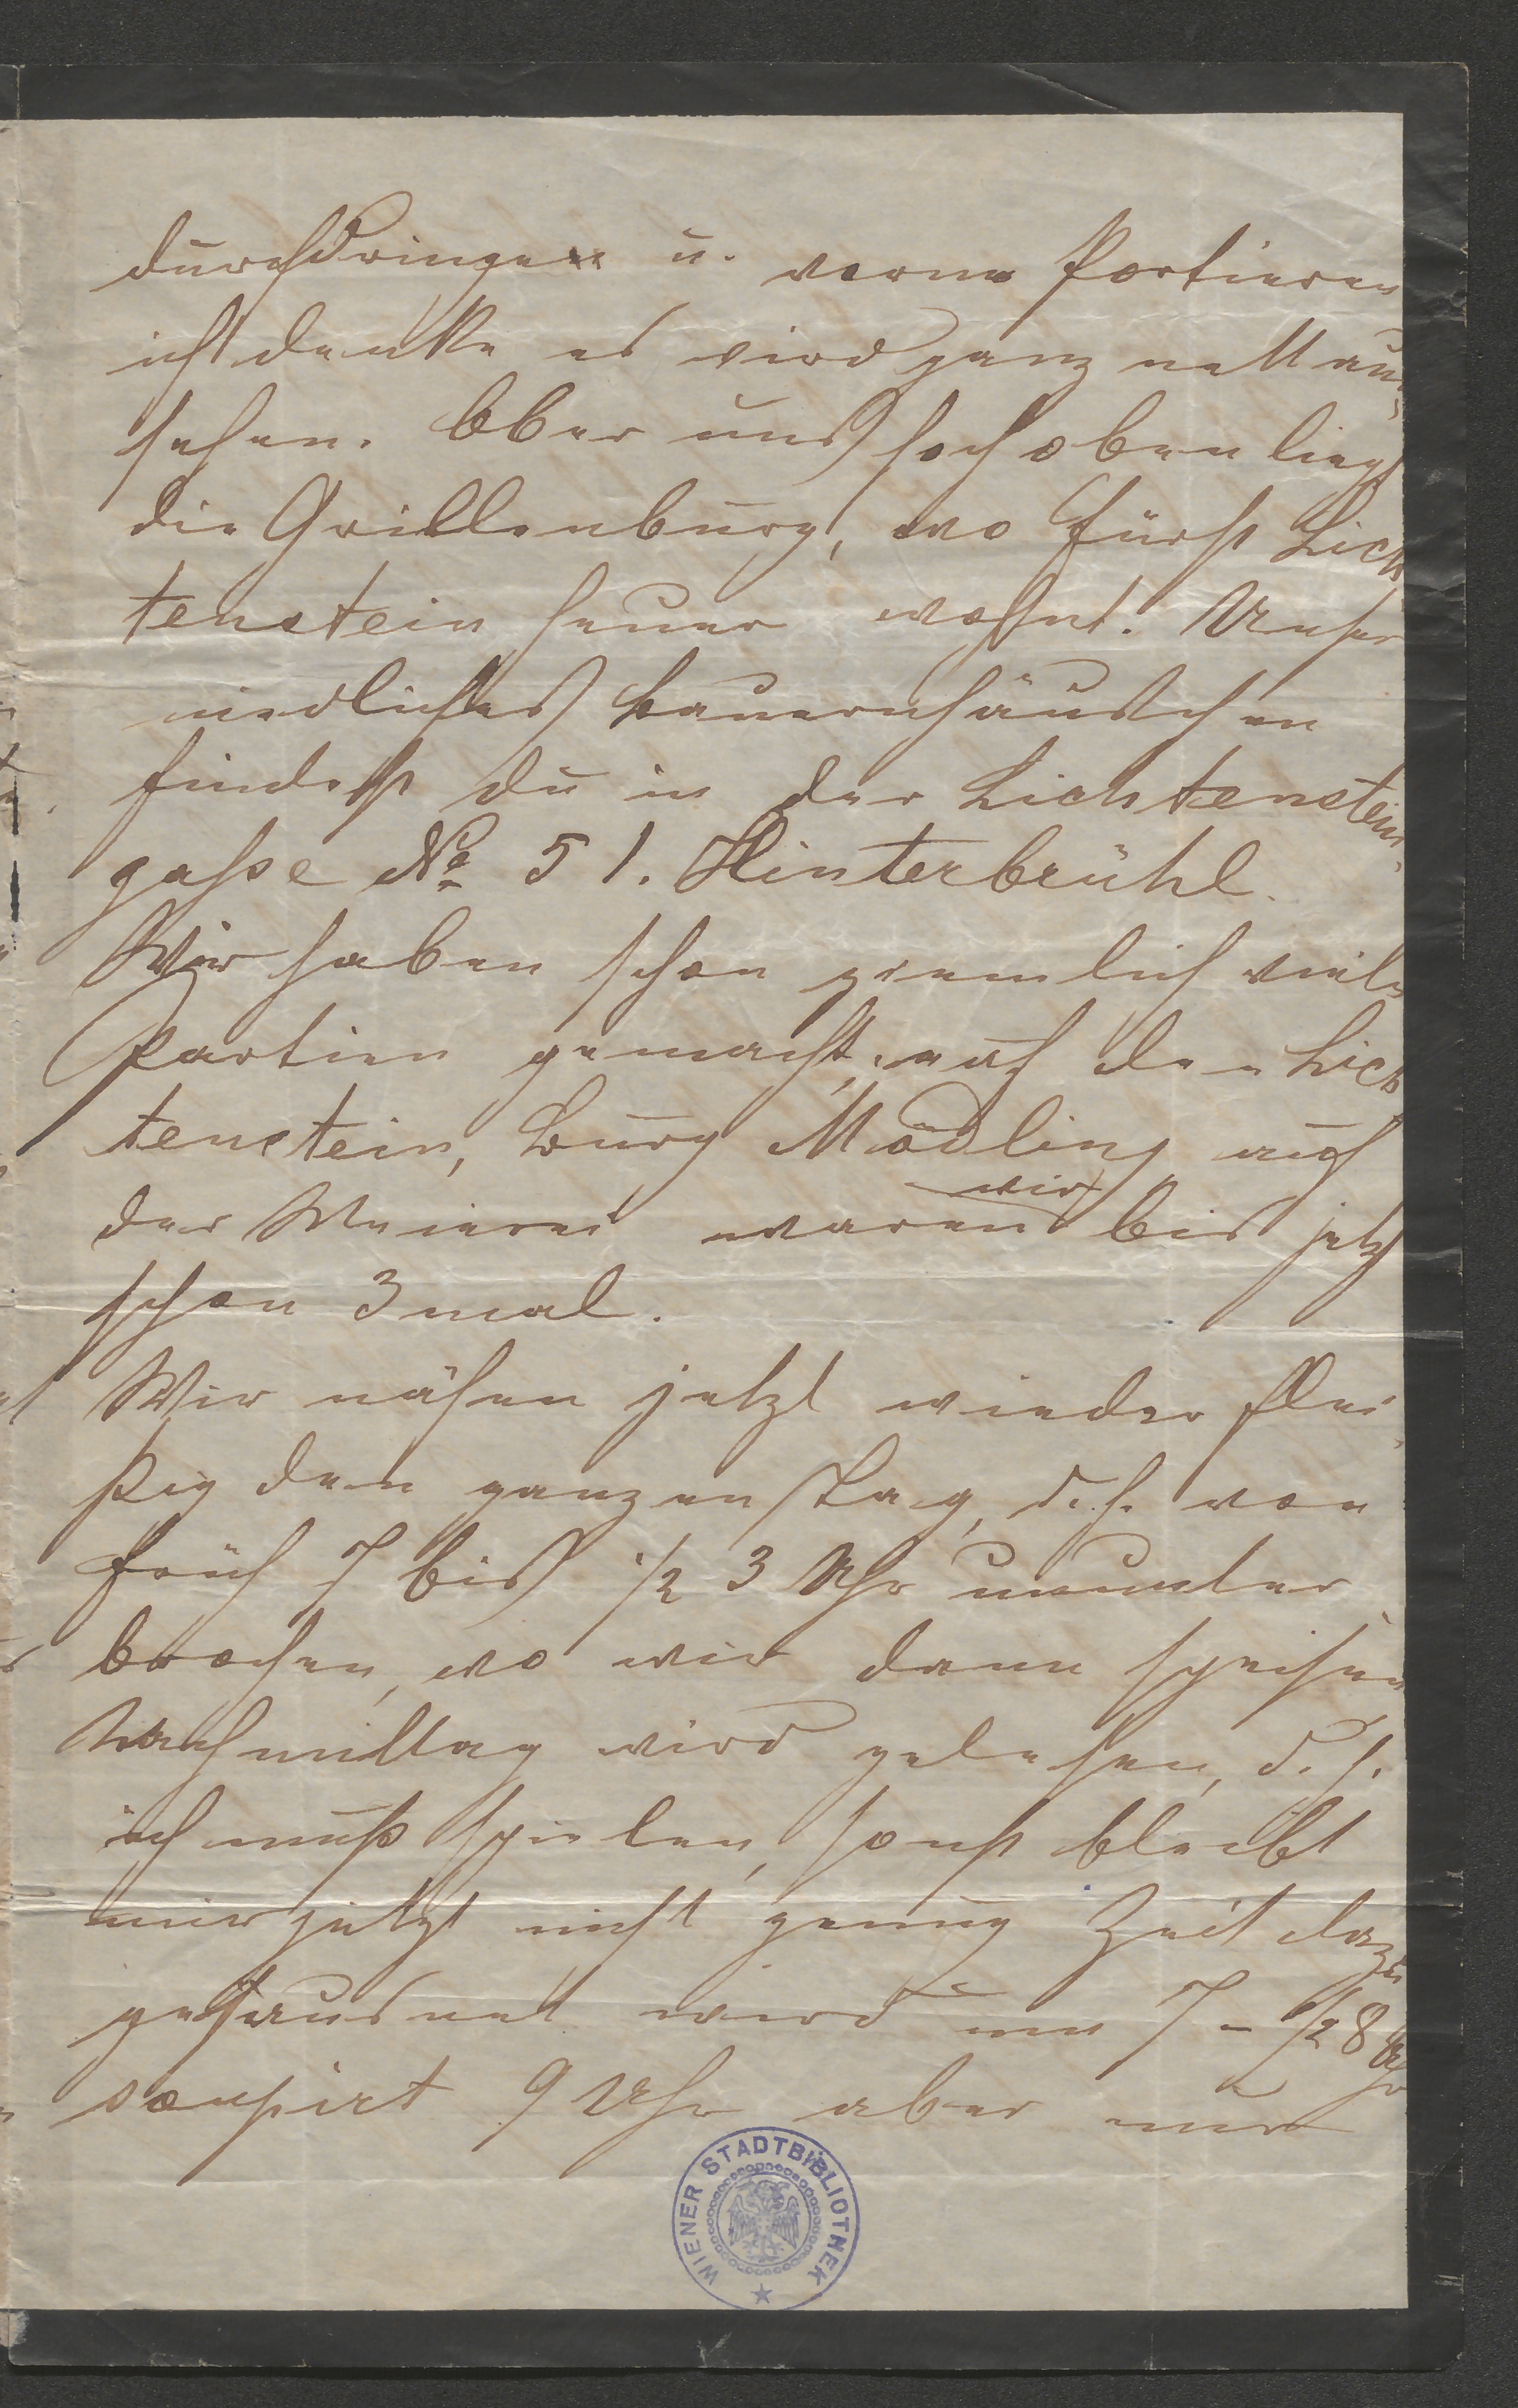 durchdringen u. vorne Portieren
ich denke es wird ganz nett aus-
sehen. Ober uns hoch oben liegt
die Grillenburg, wo Fürst Lich
tenstein heuer wohnt. Unser
niedliches Bauernhäuschen
findest du in der Lichtenstein-
gaße No 51. Hinterbrühl.
Wir haben schon ziemlich viele
Partien gemacht, auf den Lich
tenstein, Burg Mödling auf
wir
der Meierei waren bis jetzt
schon 3mal.
Wir nähen jetzt wieder flei-
ßig den ganzen Tag, d. h. von
früh 7 bis ½ 3 Uhr ununter
brochen, wo wir dann speisen
Nachmittag wird gelesen, d. h.
ich muß spielen, sonst bleibt
mir jetzt nicht genug Zeit dazu
gejausnet wird um 7 - ½ 8 Uhr
soupirt 9 Uhr aber nur
WIENER STADTBIBLIOTHEK